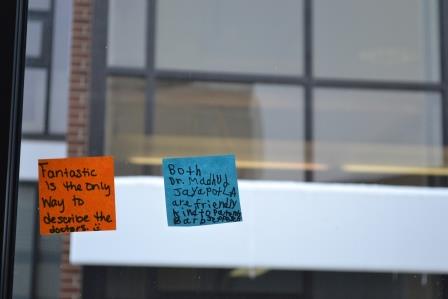 Fantastic
is the only
way to
describe the
doctors.
Both
Dr. Madhu &
Jayapotla
are friendly
kind to